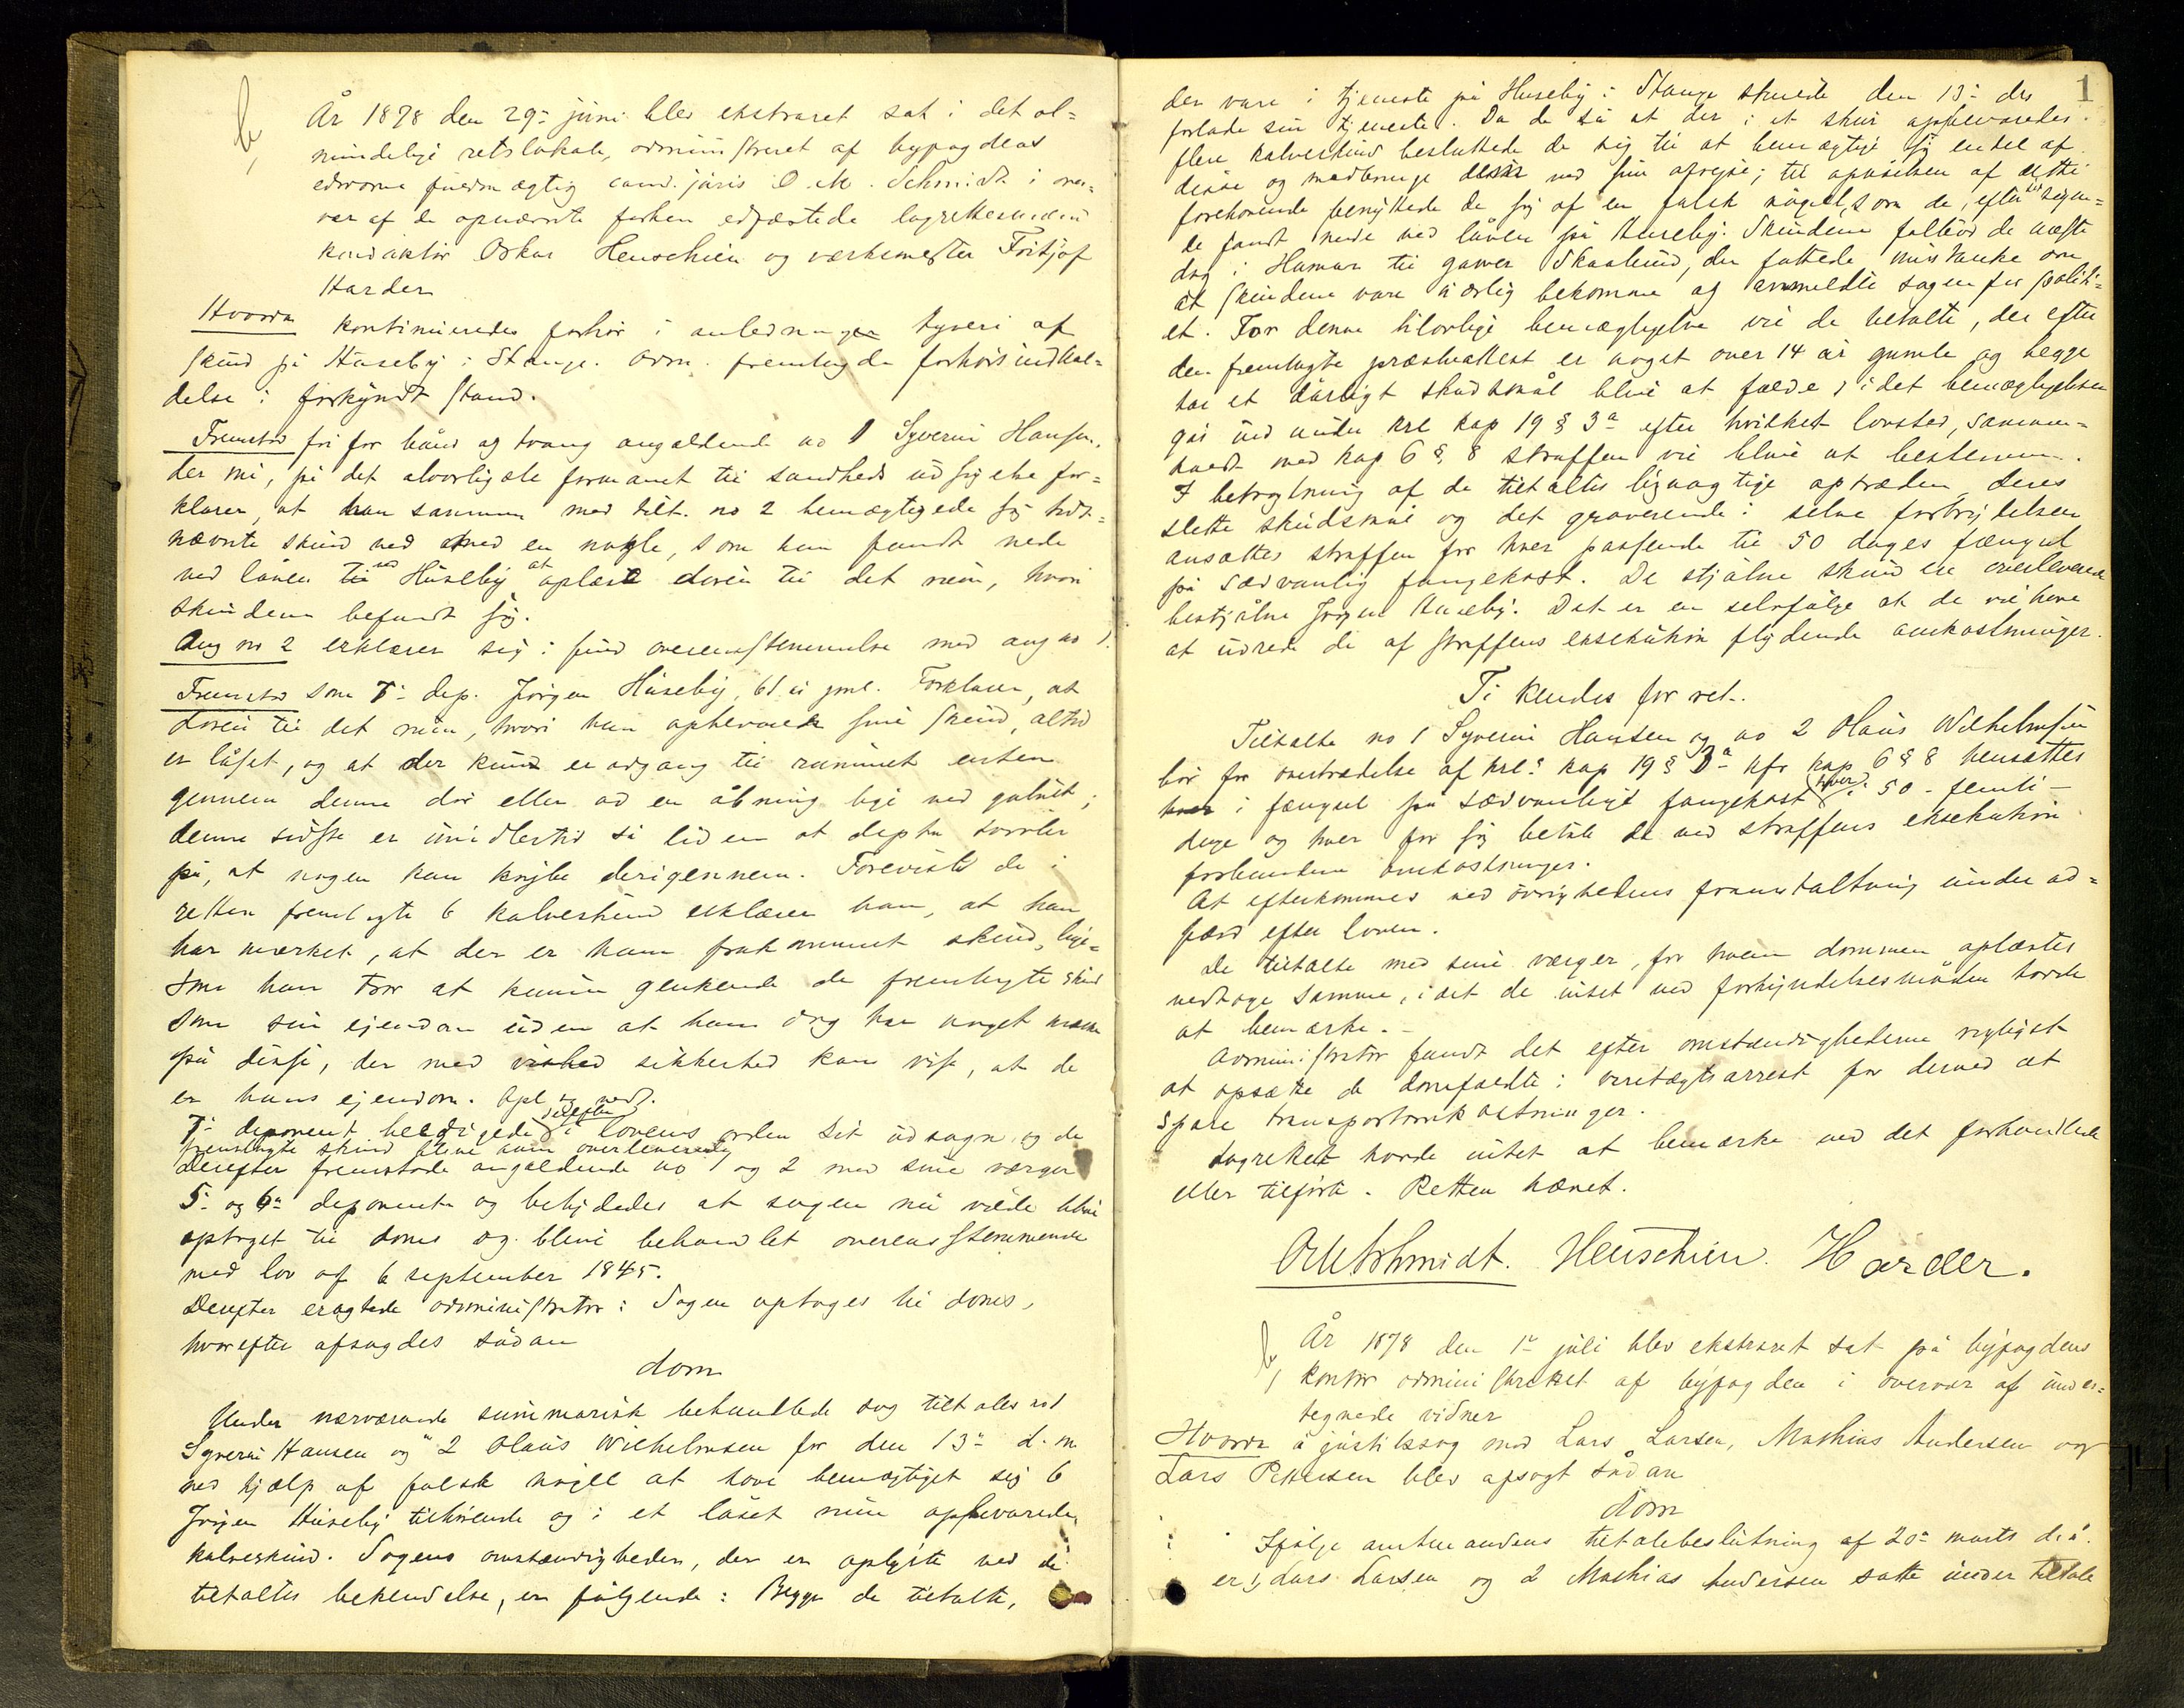 År 1878 den 29- juni blev ekstraret sat i det al=
mindelige retslokale, administreret af byfogdens
edsvorne fuldmægtig cand. juris O. M. Schmidt i over=
vær af de opnævnte forhen edfæstede lagrettesmænd
konduktør Oskar Henschien og værkmester Fritjof
Harder
Hvorda kontinueredes forhør i anledningen tyveri af
skind på Huseby i Stange. Adm. fremlagde forhørsindkal=
delse i forkyndt stand.
Fremstod fri for bånd og tvang angældende no 1 Syverin Hansen,
der nu, på det alvorligste formanet til sandheds udsigelse for=
klarer, at han sammen med tilt. no 2 bemægtigede sig hidt=
nævnte skind ved med en nøgle, som han fandt nede
ved låven ved Huseby at oplåse døren til det rum, hvori
skindene befandt sig.
Ang no 2 erklærer sig i fuld overensstemmelse med ang no 1.
Fremstod som 7- dep. Jørgen Huseby, 61 år gml. Forklarer, at
døren til det rum, hvori han opbevarede sine skind, altid
er låset, og at der kun er adgang til rummet enten
gennem denne dør eller ad en åbning lige ved gulvet;
denne sidste er imidlertid så liden at deptn tvivler
på, at nogen kan krybe derigennem. Foreviste de i
retten fremlagte 6 kalveskind erklærer han, at han
har mærket, at der er ham frakommet skind, lige=
som han tror at kunne genkende de fremlagte skind
som sin ejendom uden at han dog har noget mærke
på disse, der med vished sikkerhed kan vise, at de
er hans ejendom. Opl og vedt.
7- deponent beedigede derefter i lovens orden sit udsagn og de
fremlagte skind bleve ham overleverede
Derefter fremstode angældende no 1 og 2 med sine værger
5- og 6- deponenter og betydedes at sagen nu vilde blive
optaget til doms og blive behandlet overensstemmende
med lov af 6 september 1845.
Derefter eragtede administrator: Sagen optages til doms,
hvorefter afsagdes sådan
dom
Under nærværende summarisk behandlede sag tiltales no 1
Syverin Hansen og " 2 Olaus Wilhelmsen for den 13- d. m.
ved hjælp af falsk nøgle at have bemægtiget sig 6
Jørgen Huseby tilhørende og i et låset rum opbevarede
kalveskind. Sagens omstændigheder, der er oplyste ved de
tiltaltes bekendelse, er følgende: Begge de tiltalte,
1
der vare i tjeneste på Huseby i Stange skulde den 13- ds
forlade sin tjeneste. Da de så at der i et skur opbevaredes
flere kalveskind besluttede de sig til at bemægtige sig endel af
disse og medbringe disse ved sin afrejse; til opnåelsen af dette
forehavende benyttede de sig af en falsk nøgel, som de, efter
de fandt nede ved låven på Huseby. Skindene falbød de næste
dag i Hamar til garver Skaalund, der fattede mistanke om
at skindene vare uærlig bekomne og anmeldte sagen for politi=
et. For denne ulovlige bemægtigelse vil de tiltalte, der efter
den fremlagte præsteattest er noget over 14 år gamle og begge
har et dårligt skudsmål blive at fælde, idet bemægtigelsen
går ind under krl kap 19 § 3a efter hvilket lovsted, sammen=
holdt med kap 6 § 8 straffen vil blive at bestemme.
I betragtning af de tiltaltes ligeagtige optræden, deres
slette skudsmål og det graverende i selve forbrydelsen
ansættes straffen for hver passende til 50 dages fængsel
på sædvanlig fangekost. De stjålne skind er overleverede
bestjålne Jørgen Huseby. Det er en selvfølge at de vil have
at udrede de af straffens eksekution flydende omkostninger.
Ti kendes for ret.
Tiltalte no 1 Syverin Hansen og no 2 Olaus Wilhelmsen
bør for overtrædelse af krls kap 19 § 3a kfr kap 6 § 8 hensættes
hver i fængsel på sædvanlige fangekost (hver) i 50 - femti -
dage og hver for sig betale de ved straffens eksekution
forbundne omkostninger.
At efterkommes ved øvrighedens foranstaltning under ad=
færd efter loven.
De tiltalte med sine værger, for hvem dommen oplæstes
vedtoge samme, idet de intet ved forkyndelsesmåden havde
at bemærke.
Administrator fandt det efter omstændighederne rigtigst
at opsætte de domfældte i varetægtsarrest for derved at
spare transportomkostninger.
Lagrettet havde intet at bemærke ved det forhandlede
eller tilførte. Retten hævet.
OMSchmidt. Henschien. Harder.
År 1878 den 1- juli blev ekstraret sat på byfogdens
kontor administreret af byfogden i overvær af under=
tegnede vidner
Hvorda i justitssag mod Lars Larsen, Mathias Andersen og
Lars Pettersen blev afsagt sådan
dom
Ifølge amtmandens tiltalebeslutning af 20- marts d. å.
er 1, Lars Larsen og 2 Mathias Andersen satte under tiltale